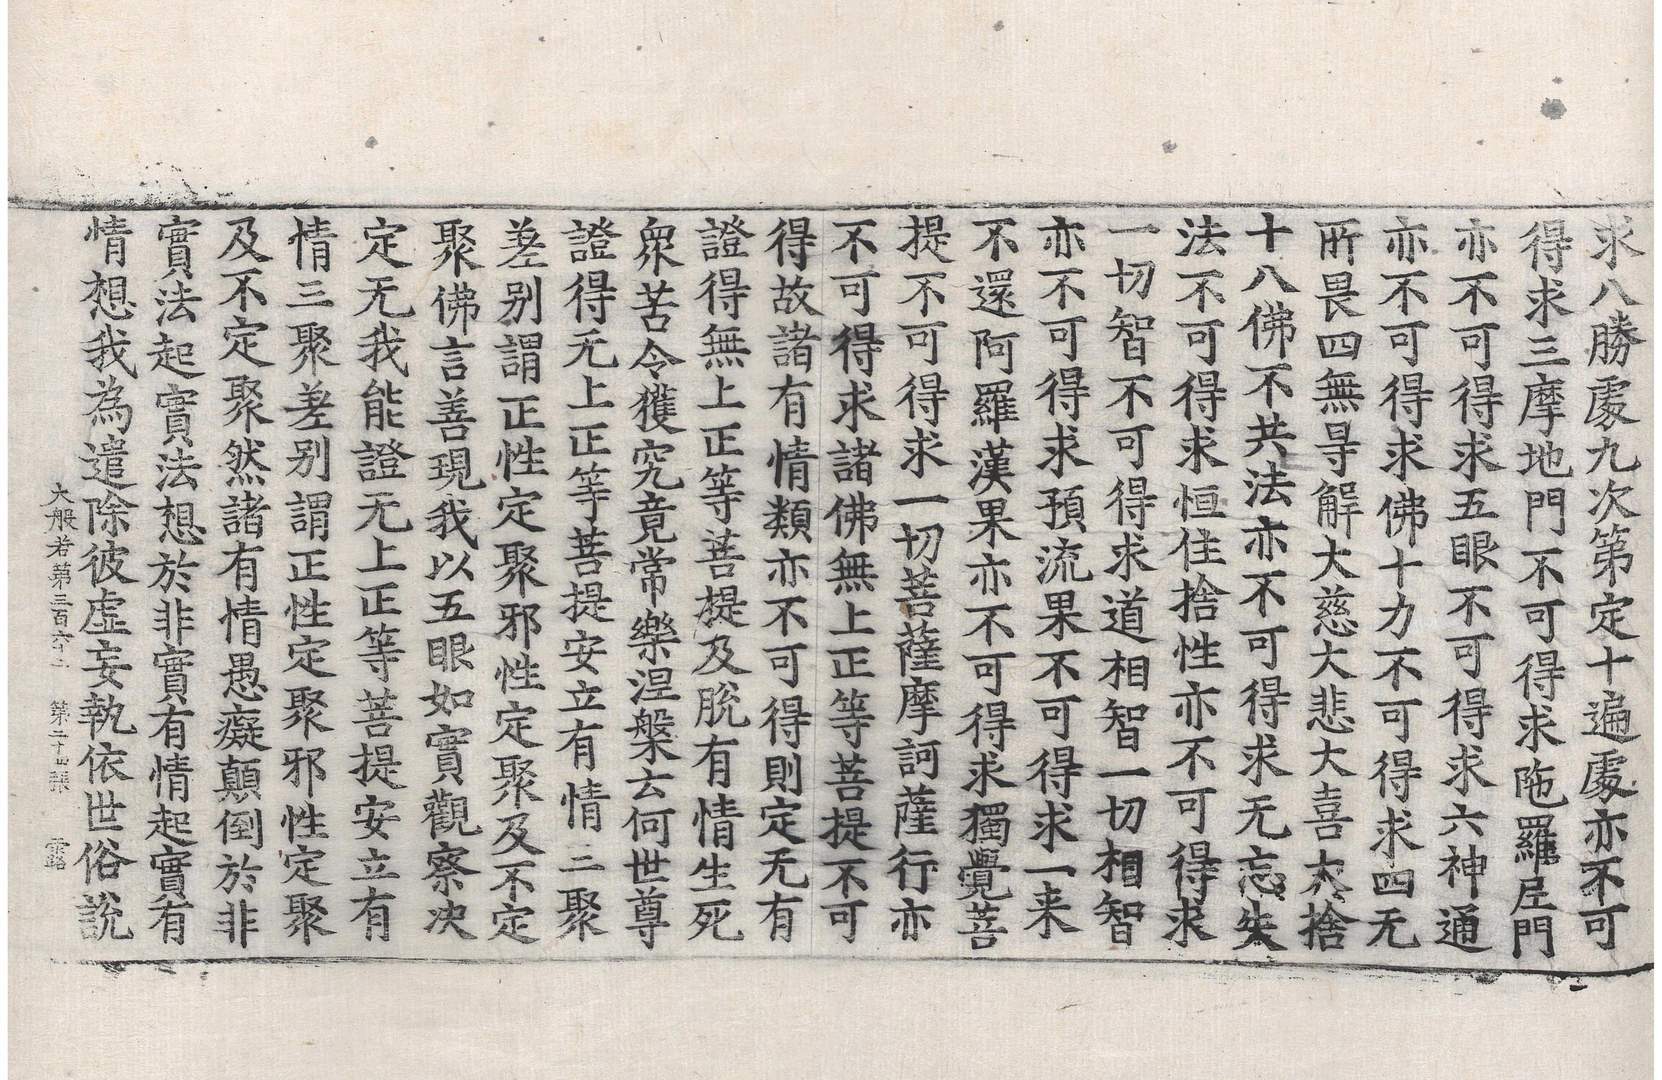 求八勝處九次第定十遍處亦不可
得求三摩地門不可得求陁羅尼門
亦不可得求五眼不可得求六神通
亦不可得求佛十力不可得求四无
所畏四無㝵解大慈大悲大喜大捨
十八佛不共法亦不可得求无忘失
法不可得求恒住捨性亦不可得求
一切智不可得求道相智一切相智
亦不可得求預流果不可得求一来
不還阿羅漢果亦不可得求獨覺菩
提不可得求一切菩薩摩訶薩行亦
不可得求諸佛無上正等菩提不可
得故諸有情類亦不可得則定无有
證得無上正等菩提及脫有情生死
衆苦令獲究竟常樂涅槃云何世尊
證得无上正等菩提安立有情三聚
差别謂正性定聚邪性定聚及不定
聚佛言善現我以五眼如實觀察决
定无我能證无上正等菩提安立有
情三聚差别謂正性定聚邪性定聚
及不定聚然諸有情愚癡顛倒於非
實法起實法想於非實有情起實有
情想我為遣除彼虛妄執依世俗說
大般若第三百六十二 第二十四張